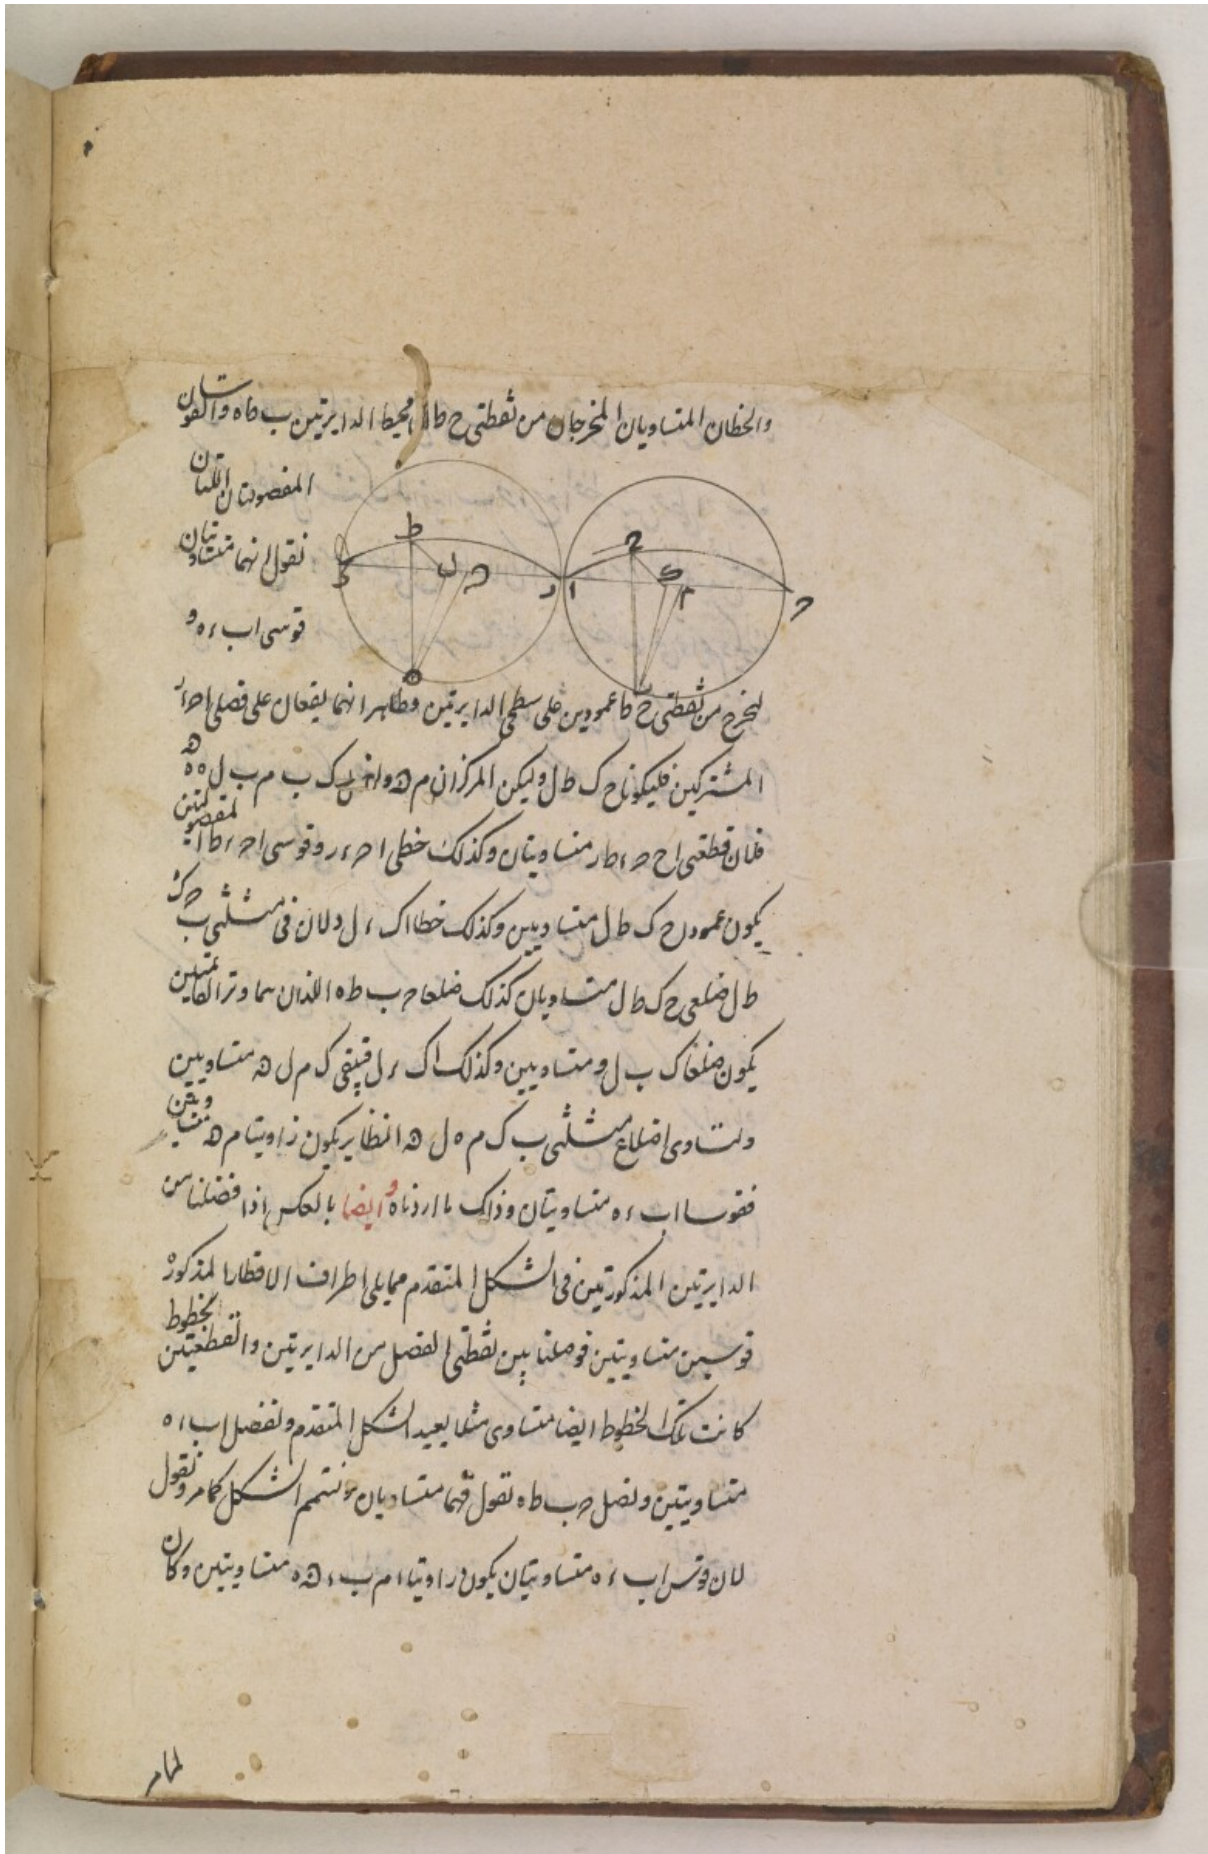 والخطان المتساويان المخرجان من نقطتى ح ط الى محيط الدايرتين ب ط ه والقوسان
المفصولتان اللتان
نقول انهما متساويتان
قوسى اب ء ه و
لنخرج من نقطتى ح ط عمودين على سطحى الدايرتين وظاهر انهما يقعان على فصلى ا ح ء ر
المشتركين فليكونا ح ك ط ل وليكن المركزان م ھ و ك ب م ب ل ه ھ ه
فلان قطعتى ا ح ح ء ط ر متساويتان وكذلك خطى ا ح ء ر وقوسى ا ح ء ط المفصولتين
يكون عمودا ح ك ط ل متساويين وكذلك خطا اك ء ل ولان فى مثلثى ح ب ك
ط ل ضلعى ح ك ط ل متساويان كذلك ضلعا ح ب ط ه اللذان هما وتر القايمتين
يكون ضلعا ك ب ل ه متساويين وكذلك اك ء ل فيبقى ك م ل ھ متساويين
ولتساوى اضلاع مثلثى ب ك م ه ل ھ النظاير يكون زاويتا م ھ متساويتين
فقوسا اب ء ه متساويتان وذلك ما اردناه وايضا بالعكس اذا فصلنا من
الدايرتين المذكورتين فى الشكل المتقدم مما يلى اطراف الاقطار المذكورة
قوسين متساويتين فوصلنا بين نقطتى الفصل من الدايرتين والقطعتين بخطوط
كانت تلك الخطوط ايضا متساوى مثلا يعيد الشكل المتقدم ونفصل اب ء ه
متساويتين ونصل ح ب ط ه نقول فهما متساويان ونتمم الشكل كما مر ونقول
لان قوسى اب ء ه متساويتان يكون زاويتا ا م ب ء ھ ه متساويتين وكان